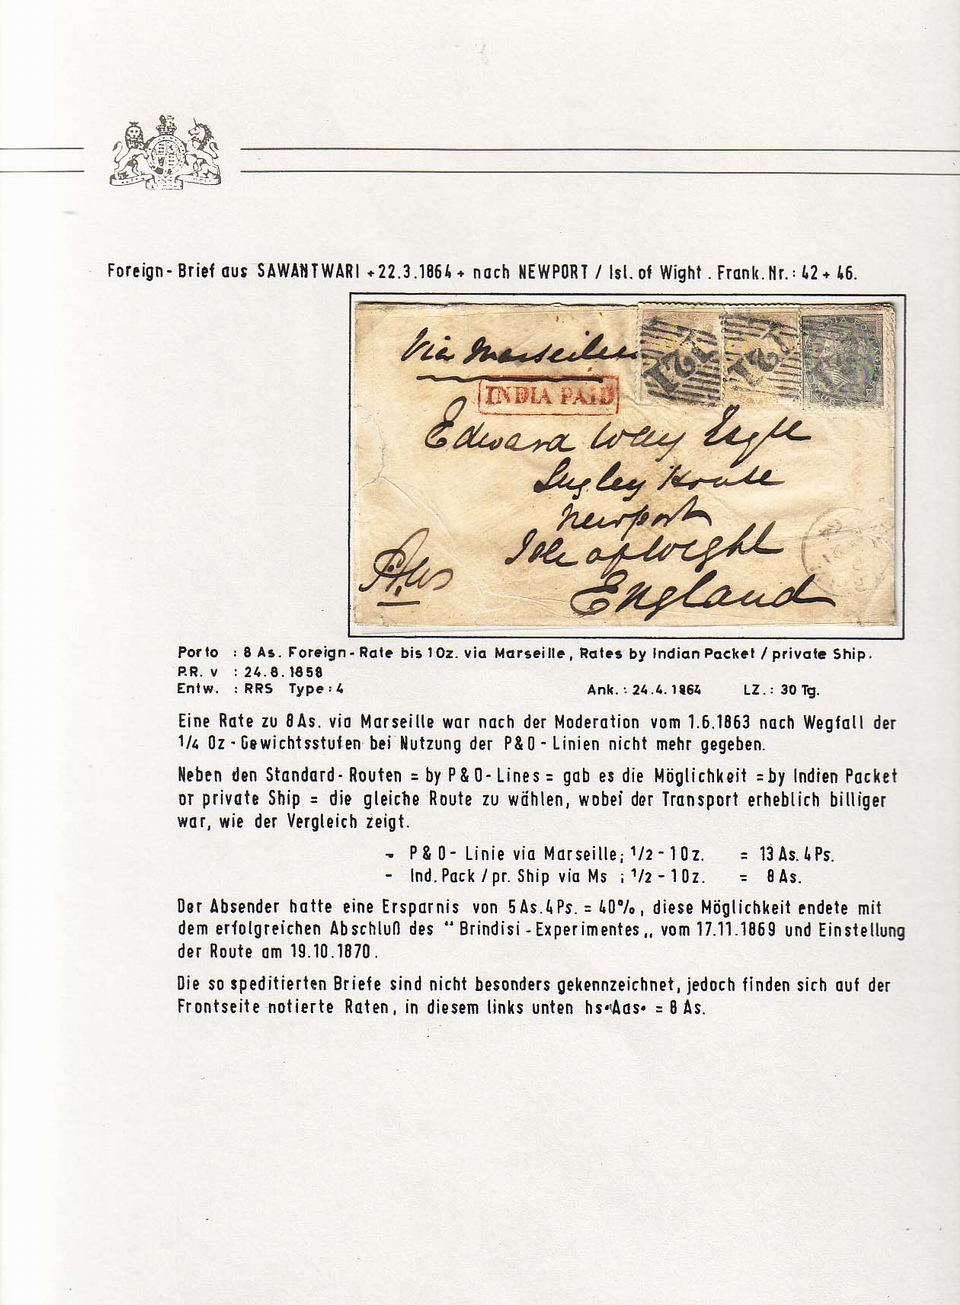 Foreign-Brief aus SAWANTWARI +22.3.1864+ nach NEWPORT / Isl. of Wight. Frank.Nr.: 42+46.
Via Marseilles
INDIA PAID
121
121
Edward Way Esqre
Newport
Isle of Wight
England
Porto : 8 As. Foreign-Rate bis 1Oz. via Marseille, Rates by Indian Packet / private Ship.
P.R. v : 24.8.1858
Entw. : RRS Type:4 Ank.: 24.4.1864 LZ.: 30 Tg.
Eine Rate zu 8As. via Marseille war nach der Moderation vom 1.6.1863 nach Wegfall der
1/4 Oz-Gewichtsstufen bei Nutzung der P&O-Linien nicht mehr gegeben.
Neben den Standard-Routen = by P&O-Lines = gab es die Möglichkeit =by Indien Packet
or private Ship = die gleiche Route zu wählen, wobei der Transport erheblich billiger
war, wie der Vergleich zeigt.
- P&O- Linie via Marseille; 1/2-1Oz. = 13As.4Ps.
- Ind.Pack/pr. Ship via Ms ; 1/2-1Oz. = 8As.
Der Absender hatte eine Ersparnis von 5As.4Ps. = 40%, diese Möglichkeit endete mit
dem erfolgreichen Abschluß des "Brindisi-Experimentes„ vom 17.11.1869 und Einstellung
der Route am 19.10.1870.
Die so speditierten Briefe sind nicht besonders gekennzeichnet, jedoch finden sich auf der
Frontseite notierte Raten, in diesem links unten hs"Aas" = 8As.